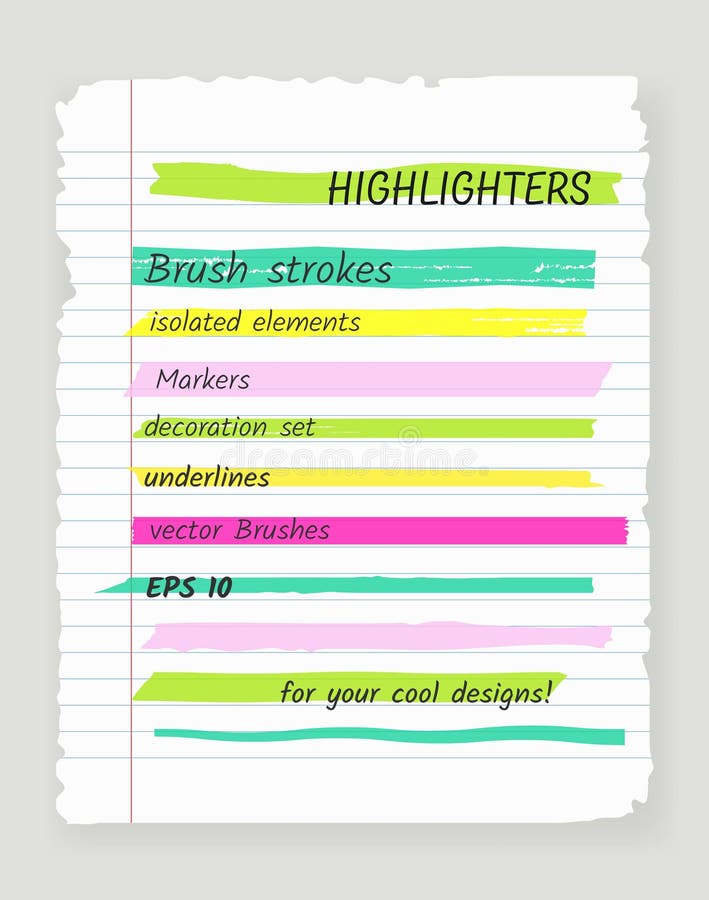 HIGHLIGHTERS
Brush strokes
isolated elements
Markers
decoration set
dreamstime.com
underlines
vector Brushes
EPS 10
for your cool designs!